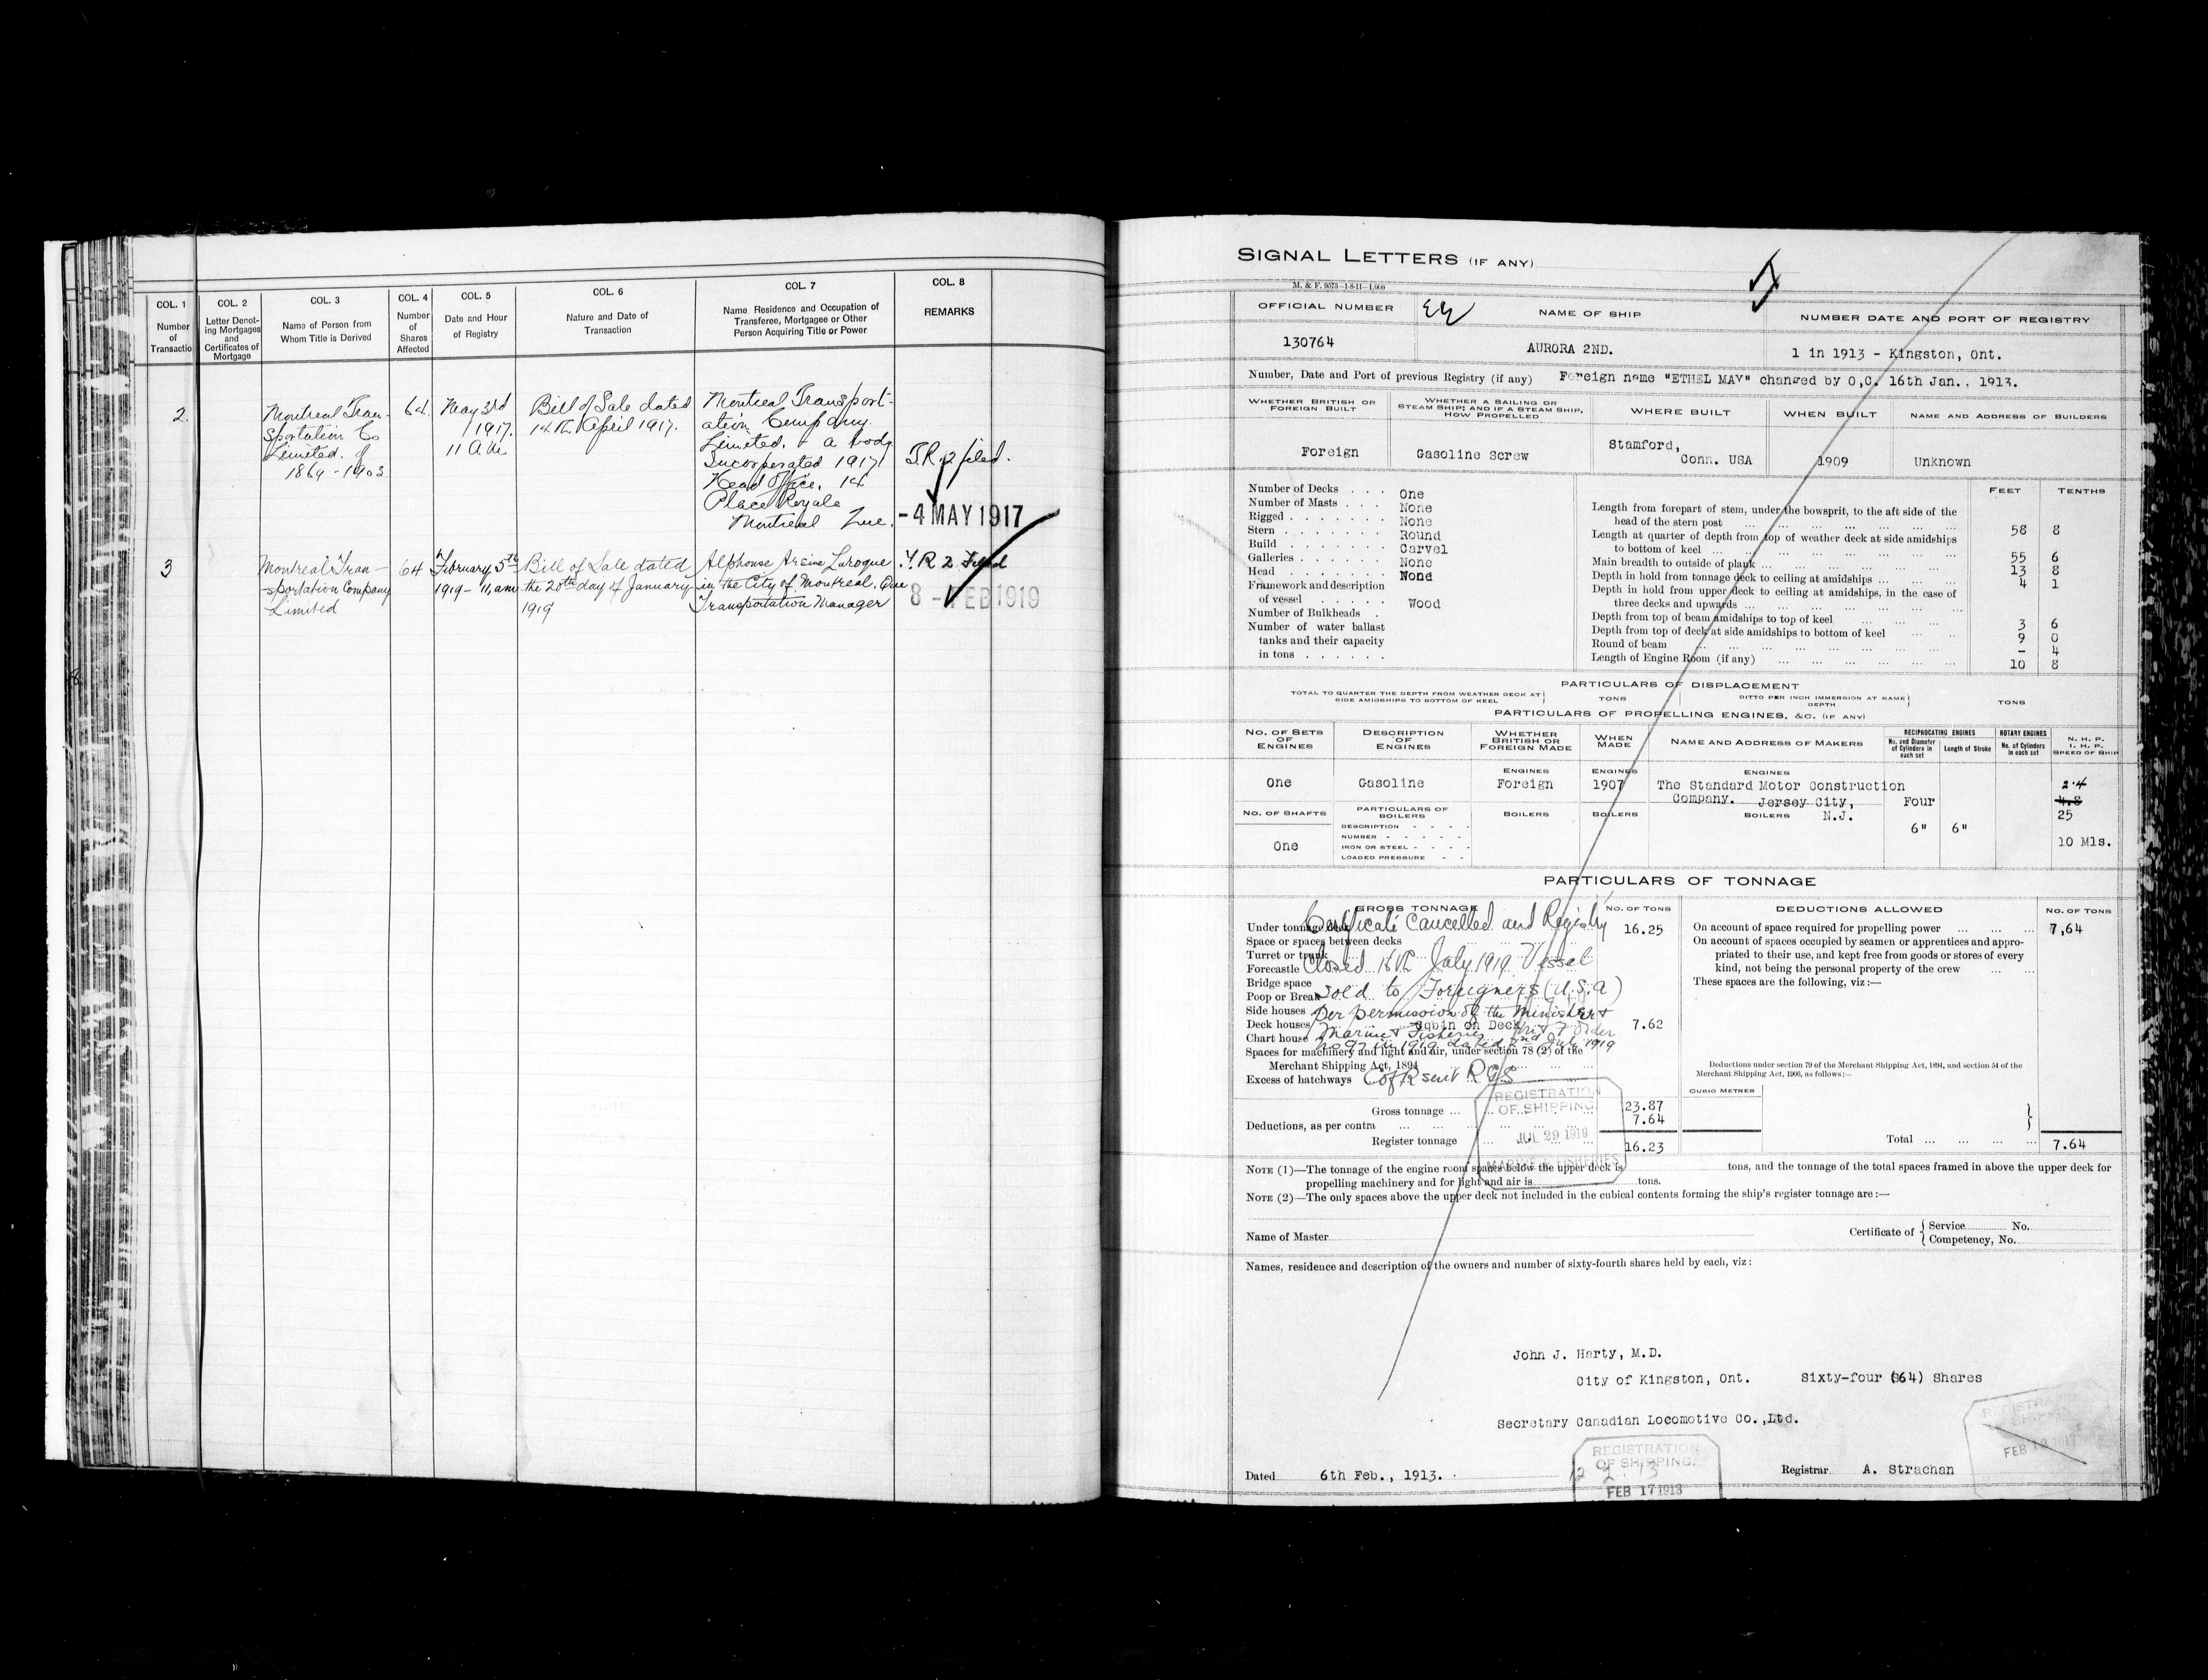 COL. 1
Number
of
Transactio
COL. 2
Letter Denot-
ing Mortgages
and
Certificates of
Mortgage
COL. 3
Name of Person from
Whom Title is Derived
COL. 4
Number
of
Shares
Affected
COL. 5
Date and Hour
of Registry
COL. 6
Nature and Date of
Transaction
COL. 7
Name Residence and Occupation of
Transferee, Mortgagee or Other
Person Acquiring Title or Power
COL. 8
REMARKS
2.
Montreal Tran-
sportation Co
Limited. of
1869-1903
64.
May 3rd
1917.
11 a m
Bill of Sale dated
14th April 1917.
Montreal Transport-
ation Company.
Limited. a body
Incorporated 1917
Head Office. 14
Place Royale
Montreal Que.
T.R. 2 filed.
-4 MAY 1917
3
Montreal Tran-
sportation Company
Limited
64
February 5th
1919- 11, am
Bill of Sale dated
the 20th day of January
1919
Alphonse Arsine Laroque
in the City of Montreal. Que
Transportation Manager
T.R 2 Filed
8 - FEB 1919
SIGNAL LETTERS (IF ANY)
M. & F. 9575-1-8-11-1,000
OFFICIAL NUMBER
130764
NAME OF SHIP
AURORA 2ND.
NUMBER DATE AND PORT OF REGISTRY
1 in 1913 - Kingston, Ont.
Number, Date and Port of previous Registry (if any) Foreign name "ETHEL MAY" changed by O,C. 16th Jan., 1913.
WHETHER BRITISH OR
FOREIGN BUILT
Foreign
WHETHER A SAILING OR
STEAM SHIP; AND IF A STEAM SHIP,
HOW PROPELLED
Gasoline Screw
WHERE BUILT
Stamford,
Conn. USA
WHEN BUILT
1909
NAME AND ADDRESS OF BUILDERS
Unknown
Number of Decks One
Number of Masts None
Rigged None
Stern Round
Build Carvel
Galleries None
Head None
Framework and description
of vessel Wood
Number of Bulkheads
Number of water ballast
tanks and their capacity
in tons
FEET TENTHS
Length from forepart of stem, under the bowsprit, to the aft side of the
head of the stern post 58 8
Length at quarter of depth from top of weather deck at side amidships
to bottom of keel 55 6
Main breadth to outside of plank 13 8
Depth in hold from tonnage deck to ceiling at amidships 4 1
Depth in hold from upper deck to ceiling at amidships, in the case of
three decks and upwards
Depth from top of beam amidships to top of keel 3 6
Depth from top of deck at side amidships to bottom of keel 9 0
Round of beam - 4
Length of Engine Room (if any) 10 8
PARTICULARS OF DISPLACEMENT
TOTAL TO QUARTER THE DEPTH FROM WEATHER DECK AT
SIDE AMIDSHIPS TO BOTTOM OF KEEL
TONS
DITTO PER INCH IMMERSION AT SAME
DEPTH
TONS
PARTICULARS OF PROPELLING ENGINES, &C. (IF ANY)
NO. OF SETS
OF
ENGINES
One
DESCRIPTION
OF
ENGINES
Gasoline
WHETHER
BRITISH OR
FOREIGN MADE
ENGINES
Foreign
WHEN
MADE
ENGINES
1907
NAME AND ADDRESS OF MAKERS
ENGINES
The Standard Motor Construction
Company. Jersey City,
N.J.
RECIPROCATING ENGINES
No. and Diameter
of Cylinders in
each set
Length of Stroke
Four
6" 6"
ROTARY ENGINES
No. of Cylinders
in each set
N. H. P.
I. H. P.
SPEED OF SHIP
2.4
4.8
25
10 Mls.
NO. OF SHAFTS
One
PARTICULARS OF
BOILERS
DESCRIPTION
NUMBER
IRON OR STEEL
LOADED PRESSURE
BOILERS
BOILERS
BOILERS
PARTICULARS OF TONNAGE
GROSS TONNAGE
NO. OF TONS
Under tonnage deck 16.25
Space or spaces between decks
Turret or trunk
Forecastle
Bridge space
Poop or Break
Side houses
Deck houses Cabin on Deck 7.62
Chart house
Spaces for machinery and light and air, under section 78 (2) of the
Merchant Shipping Act, 1894
Excess of hatchways
Certificate Cancelled and Registry
Closed 16th July 1919 Vessel
sold to Foreigners (U.S.A)
per permission of the Minister
Marine & Fisheries Order
No 97 in 1919 dated 2nd July 1919
C of R sent R G S
REGISTRATION
OF SHIPPING
JUL 29 1919
MARINE & FISHERIES
Gross tonnage 23.87
Deductions, as per contra 7.64
Register tonnage 16.23
DEDUCTIONS ALLOWED
NO. OF TONS
On account of space required for propelling power 7,64
On account of spaces occupied by seamen or apprentices and appro-
priated to their use, and kept free from goods or stores of every
kind, not being the personal property of the crew
These spaces are the following, viz :—
Deductions under section 79 of the Merchant Shipping Act, 1894, and section 54 of the
Merchant Shipping Act, 1906, as follows:—
CUBIC METRES
Total 7.64
NOTE (1)—The tonnage of the engine room spaces below the upper deck is tons, and the tonnage of the total spaces framed in above the upper deck for
propelling machinery and for light and air is tons.
NOTE (2)—The only spaces above the upper deck not included in the cubical contents forming the ship's register tonnage are :—
Name of Master
Certificate of
Service No.
Competency, No.
Names, residence and description of the owners and number of sixty-fourth shares held by each, viz :
John J. Harty, M.D.
City of Kingston, Ont. Sixty-four (64) Shares
Secretary Canadian Locomotive Co.,Ltd.
Dated 6th Feb., 1913.
12 2. 13
REGISTRATION
OF SHIPPING.
FEB 17 1913
Registrar A. Strachan